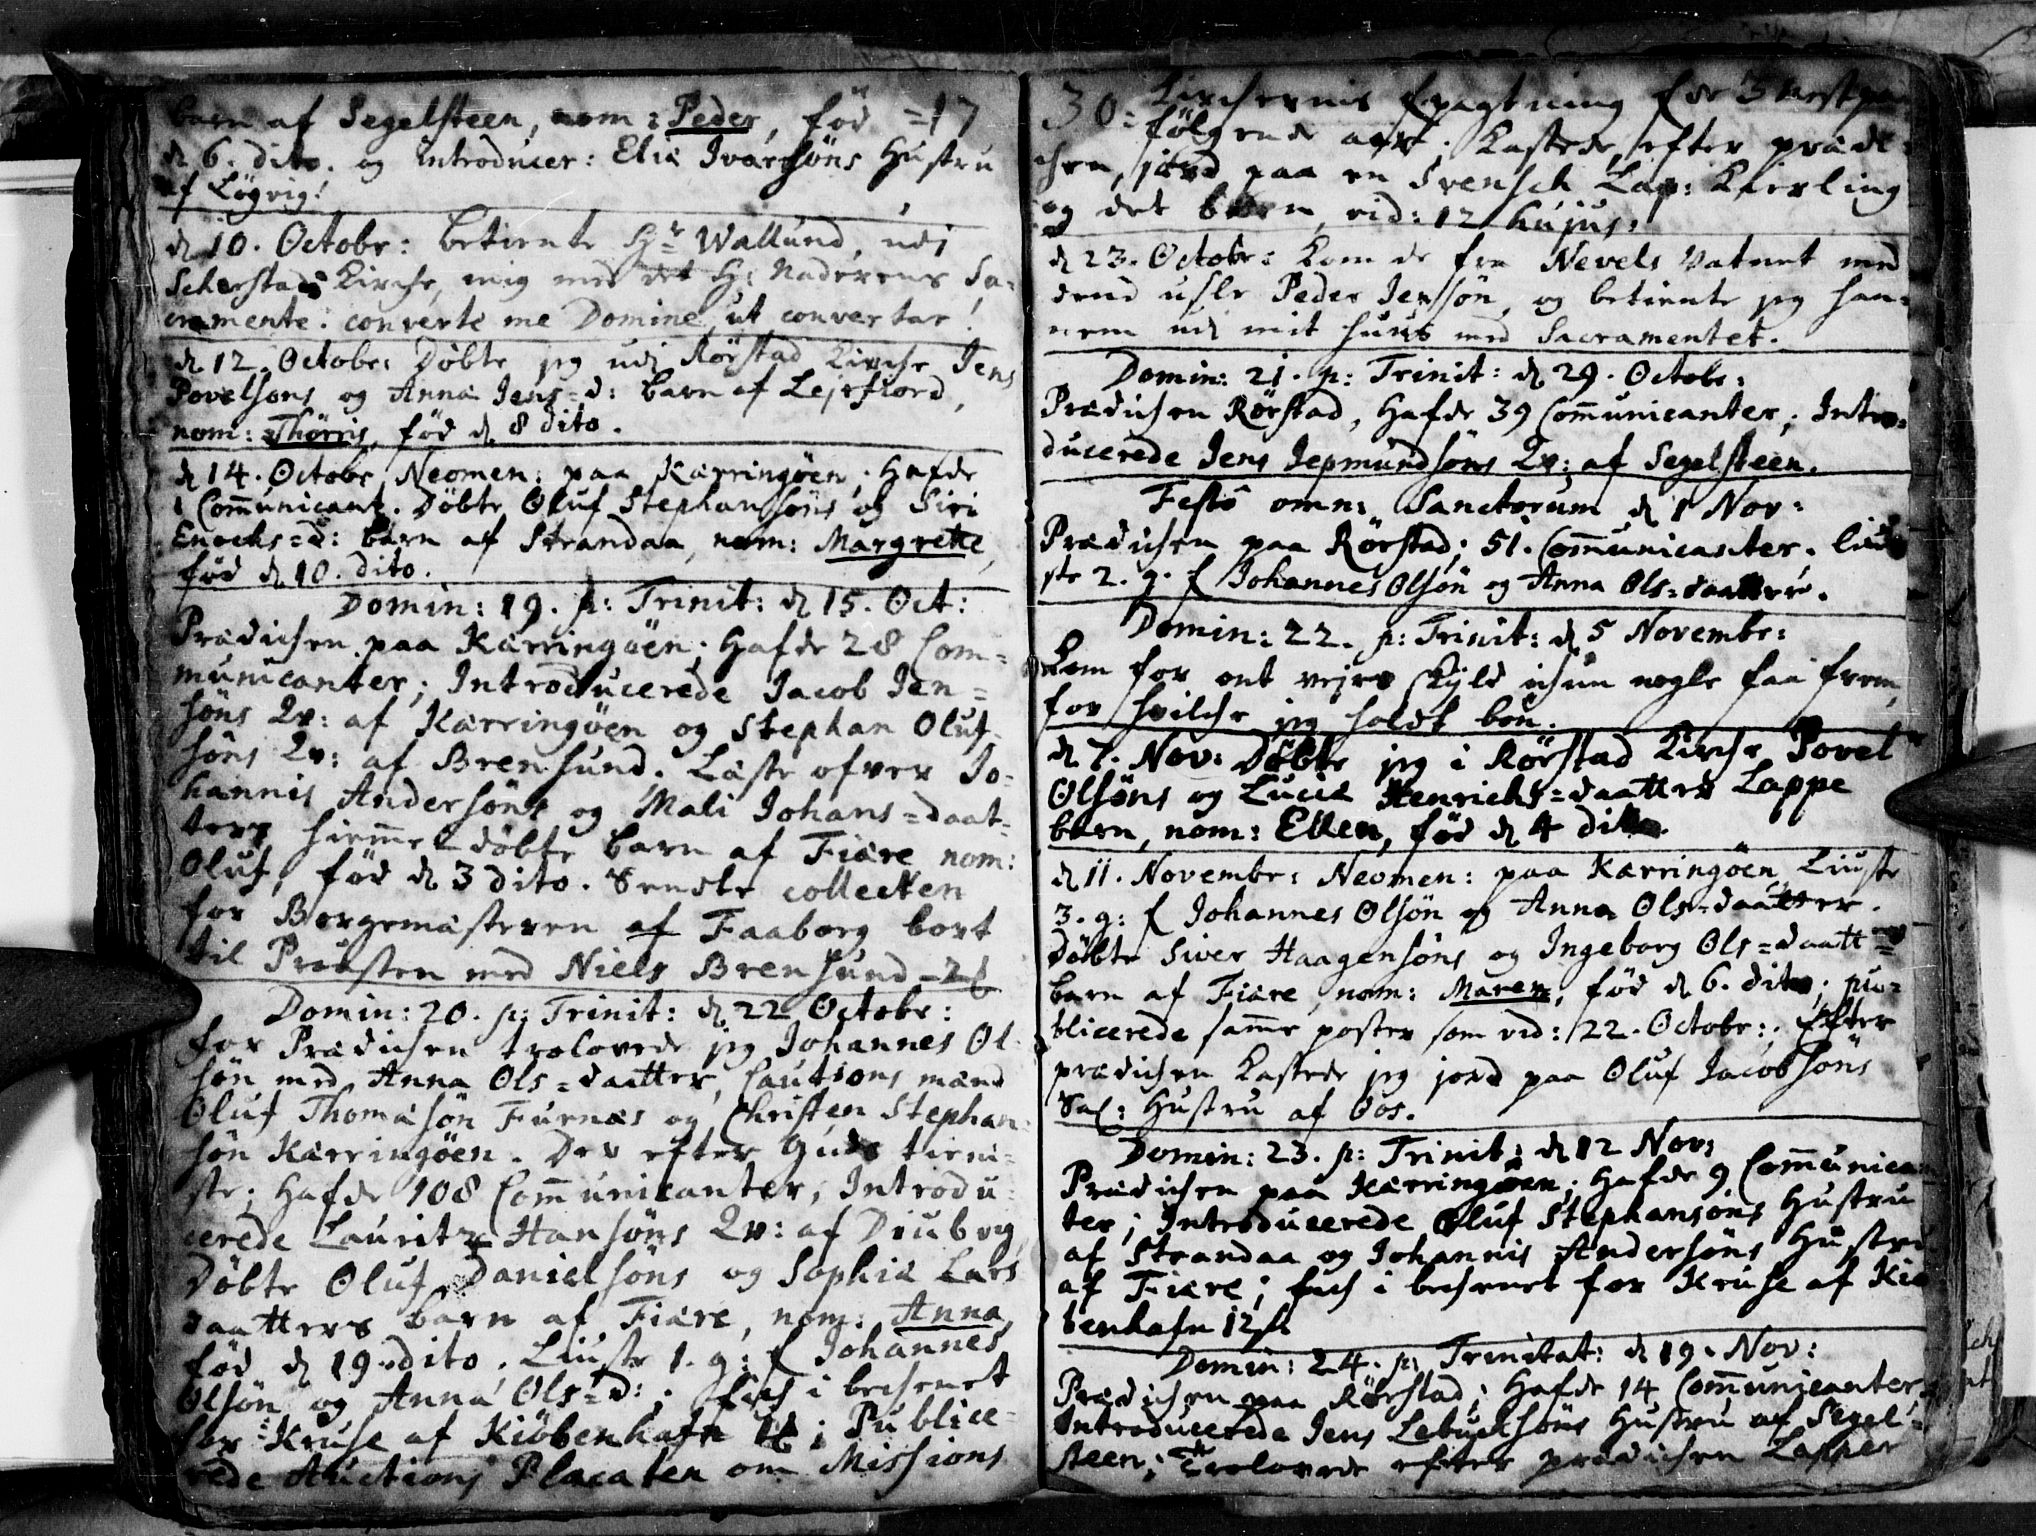 barn af Segelsteen, nom: Peder, fød =17
d 6. dito. og Introducer: Eliæ Ivarsöns Hustru
af Løgvig!
d 10. Octobr: betiente Hr Wallund, udi
Scherstad Kirche, mig med det H: Naderens Sa-
cramente: converte me Domine, ut convertar!
d 12. Octobr: Døbte jeg udi Rørstad Kirche Jens
Povelsøns og Anna Jens=d: barn af Lejrfiord,
nom: Thørris, fød d 8 dito.
d 14. Octobr Neomen: paa Kærringøen; Hafde
1 Com̄unicant. Døbte Oluf Stephansøns og Siri
Enochs=d: barn af Strandaa, nom: Margrette,
fød d 10. dito.
Domin: 19. p: Trinit: d 15. Oct:
Prædichen paa Kærringøen; Hafde 28 Com=
municanter; Introducerede Jacob Jen=
søns Qv: af Kærringøen og Stephan Oluf-
søns Qv: af Brensund. Læste ofver Jo-
hannis Andersøns og Mali Johans=daat=
ters hiem̄e døbte barn af Fiære nom:
Oluf, fød d 3 dito. Sendte collecten
for Borgemæsteren af Faaborg bort
til Præsten med Niels Brensund
Domin: 20. p: Trinit: d 22 Octobr:
for Prædichen trolovede jeg Johannes Ol-
søn med Anna Ols=daatter, Cautions mænd
Oluf Thomæsøn Furnæs og Christen Stephan-
søn Kærringøen. Der efter Guds tieni-
ste; Hafde 108 Com̄unicanter; Introdu-
cerede Lauritz Hansøns Qv: af Diubvig,
Døbte Oluf Danielsøns og Sophiæ Lars
daatters barn af Fiære, nom: Anna,
fød d 19. dito. Liuste 1. g: f Johannes
Olsøn og Anna Ols=d:; fich i bechenet
for Kruse af Kiøbenhafn; Publice-
rede Auctions Placaten om Missions
30: Kirchernis forpagtning for 3 næstpaa
følgende aar; Kastede efter prædi-
chen, jord paa en Svensch Lap: Kierling
og det barn, vid: 12 hujus.
d 23. Octobr: Kom de fra Nevels Vatnet med
dend usle Peder Jensøn, og betiente jeg han-
nem udi mit huus med Sacramentet.
Domin: 21. p: Trinit: d 29. Octobr:
Prædichen Rørstad, Hafde 39 Com̄unicanter; Intro-
ducerede Jens Jepmundsøns Qv: af Segelsteen.
Festo omn: Sanctorum d 1 Nov:
Prædichen paa Rørstad; 51. Com̄unicanter. liu-
ste 2. g. f Johannes Olsøn og Anna Ols=daatter.
Domin: 22. p: Trinit: d 5 Novembr:
Kom for ont vejrs skyld ichun nogle faa frem,
for hvilche jeg holdt bøn.
d 7. Nov: Døbte jeg i Rørstad Kirche Povel
Olsøns og Luciæ Henrichs=daatters Lappe
barn, nom: Ellen, fød d 4 dito.
d 11. Novembr: Neomen: paa Kærringøen Liuste
3. g: f Johannes Olsøn og Anna Ols=daatter.
Døbte Siver Haagensøns og Ingeborg Ols=daatt=
barn af Fiære, nom: Maren, fød d 6. dito; pu-
blicerede sam̄e poster som vid: 22. Octobr:. Efter
prædichen kastede jeg jord paa Oluf Jacobsøns
Sal: Hustru af Oos.
Domin: 23. p: Trinit: d 12 Nov:
Prædichen paa Kærringøen; Hafde 9 Com̄unican-
ter; Introducerede Oluf Stephansøns Hustru
af Strandaa og Johannis Andersøns Hustru
af Fiære; fich i bechenet for Kruse af Kiø-
benhafn 12 ß
Domin: 24. p: Trinitat: d 19. Nov:
Prædichen paa Rørstad; Hafde 14 Com̄unicanter.
Introducerede Jens Lebuchsøns Hustru af Segel-
steen; Trolovede efter prædichen Lapper